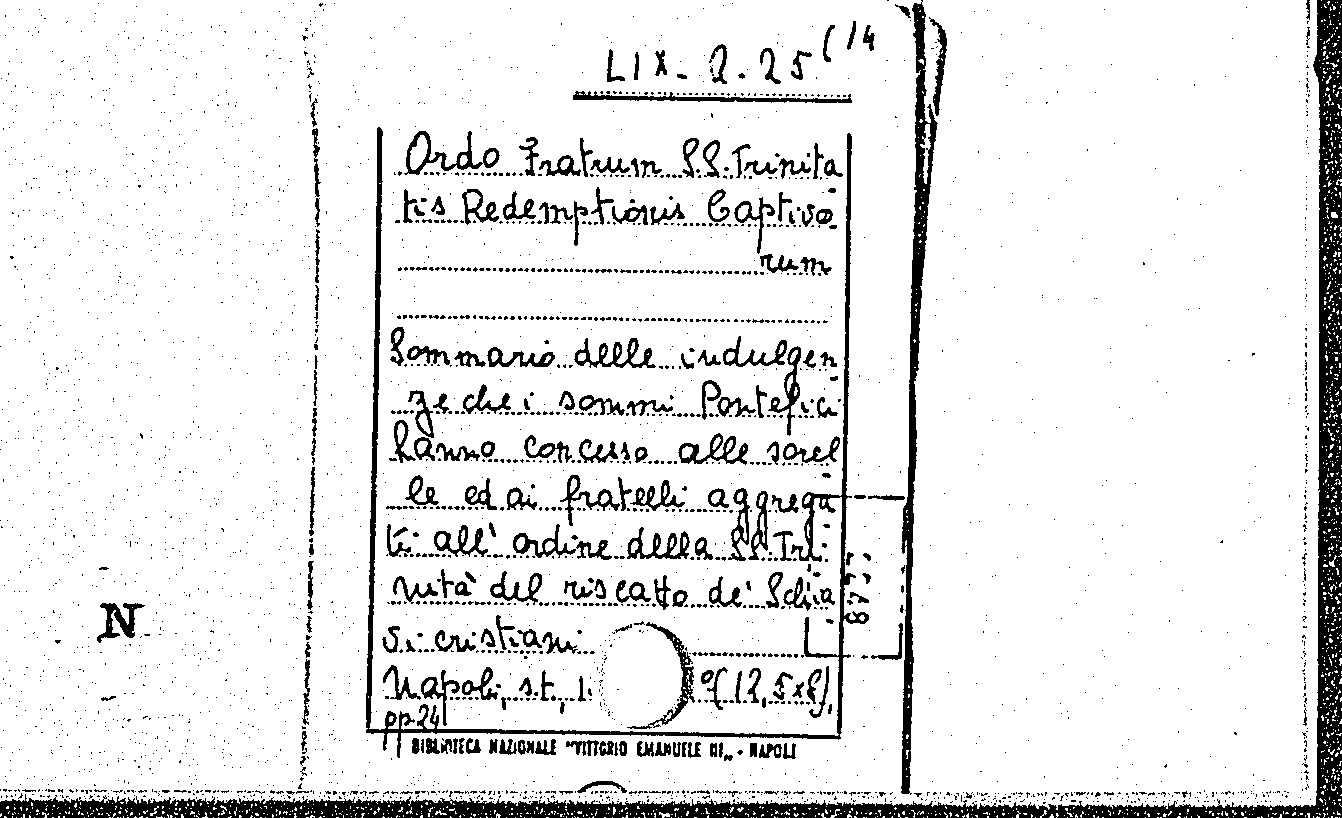 LIX. 2. 25 (14
Ordo Fratrum S.S. Trinita-
tis Redemptionis Captivo-
rum
Sommario delle indulgen-
ze che i sommi Pontefici
hanno concesso alle sorel-
le ed ai fratelli aggrega-
ti all' ordine della SS. Tri-
nità del riscatto de' Schia-
vi cristiani
Napoli, s.t., (12,5x8),
pp. 24
BIBLIOTECA NAZIONALE "VITTORIO EMANUELE III„ - NAPOLI
N